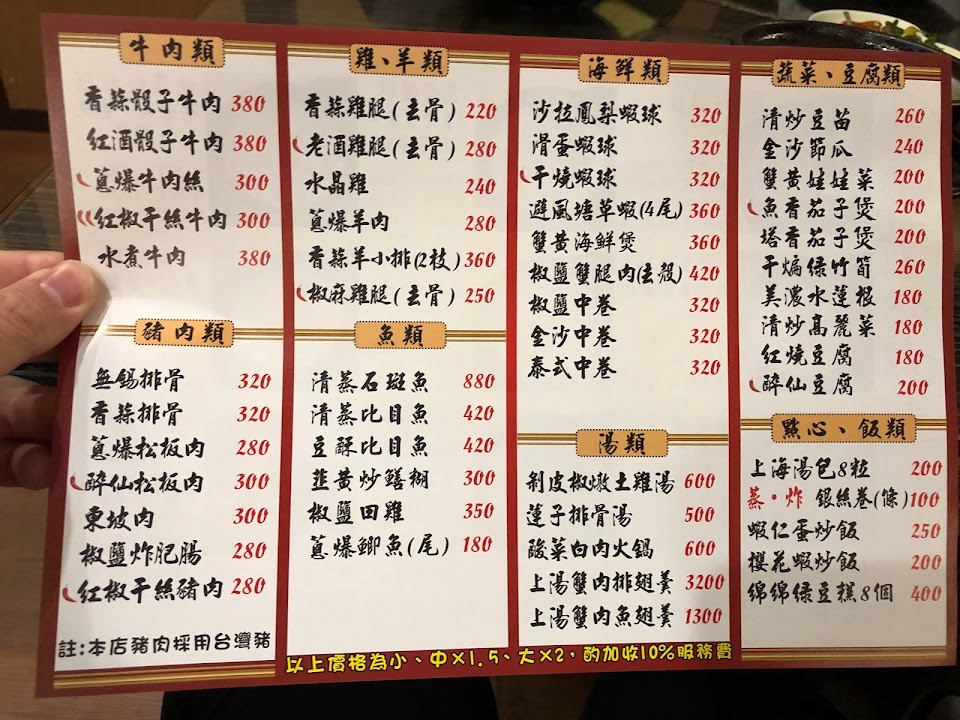 牛肉類
香蒜骰子牛肉 380
紅酒骰子牛肉 380
蔥爆牛肉絲 300
紅椒干絲牛肉 300
水煮牛肉 380
豬肉類
無錫排骨 320
香蒜排骨 320
蔥爆松板肉 280
醉仙松板肉 300
東坡肉 300
椒鹽炸肥腸 280
紅椒干絲豬肉 280
註:本店豬肉採用台灣豬
雞、羊類
香蒜雞腿(去骨) 220
老酒雞腿(去骨) 280
水晶雞 240
蔥爆羊肉 280
香蒜羊小排(2枝) 360
椒麻雞腿(去骨) 250
魚類
清蒸石斑魚 880
清蒸比目魚 420
豆酥比目魚 420
韮黃炒鱔糊 300
椒鹽田雞 350
蔥爆鯽魚(尾) 180
海鮮類
沙拉鳳梨蝦球 320
滑蛋蝦球 320
干燒蝦球 320
避風塘草蝦(4尾) 360
蟹黃海鮮煲 360
椒鹽蟹腿肉(去殼) 420
椒鹽中卷 320
金沙中卷 320
泰式中卷 320
湯類
剝皮椒燉土雞湯 600
蓮子排骨湯 500
酸菜白肉火鍋 600
上湯蟹肉排翅羹 3200
上湯蟹肉魚翅羹 1300
蔬菜、豆腐類
清炒豆苗 260
金沙節瓜 240
蟹黃娃娃菜 200
魚香茄子煲 200
塔香茄子煲 200
干煸綠竹筍 260
美濃水蓮根 180
清炒高麗菜 180
紅燒豆腐 180
醉仙豆腐 200
點心、飯類
上海湯包8粒 200
蒸·炸 銀絲卷(條) 100
蝦仁蛋炒飯 250
櫻花蝦炒飯 200
綿綿綠豆糕8個 400
以上價格為小、中×1.5、大×2,酌加收10%服務費